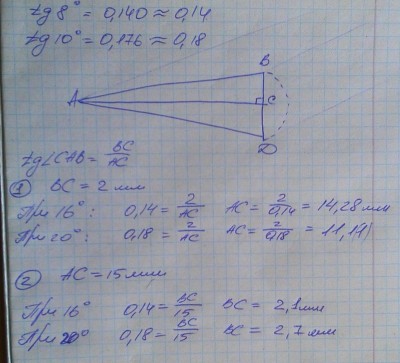 tg 8° = 0,140 ≈ 0,14
tg 10° = 0,176 ≈ 0,18
B
A
C
D
tg∠CAB = BC/AC
① BC = 2 мм
При 16°: 0,14 = 2/AC AC = 2/0,14 = 14,28 мм
При 20°: 0,18 = 2/AC AC = 2/0,18 = 11,11
② AC = 15 мм
При 16° 0,14 = BC/15 BC = 2,1 мм
При 20° 0,18 = BC/15 BC = 2,7 мм